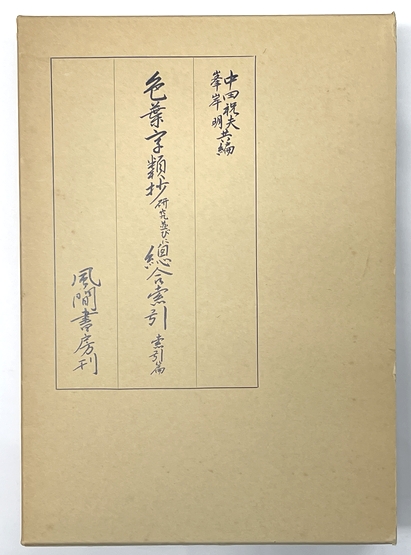 中田祝夫
峯岸明 共編
色葉字類抄 研究並びに 總合索引 索引篇
風間書房刊